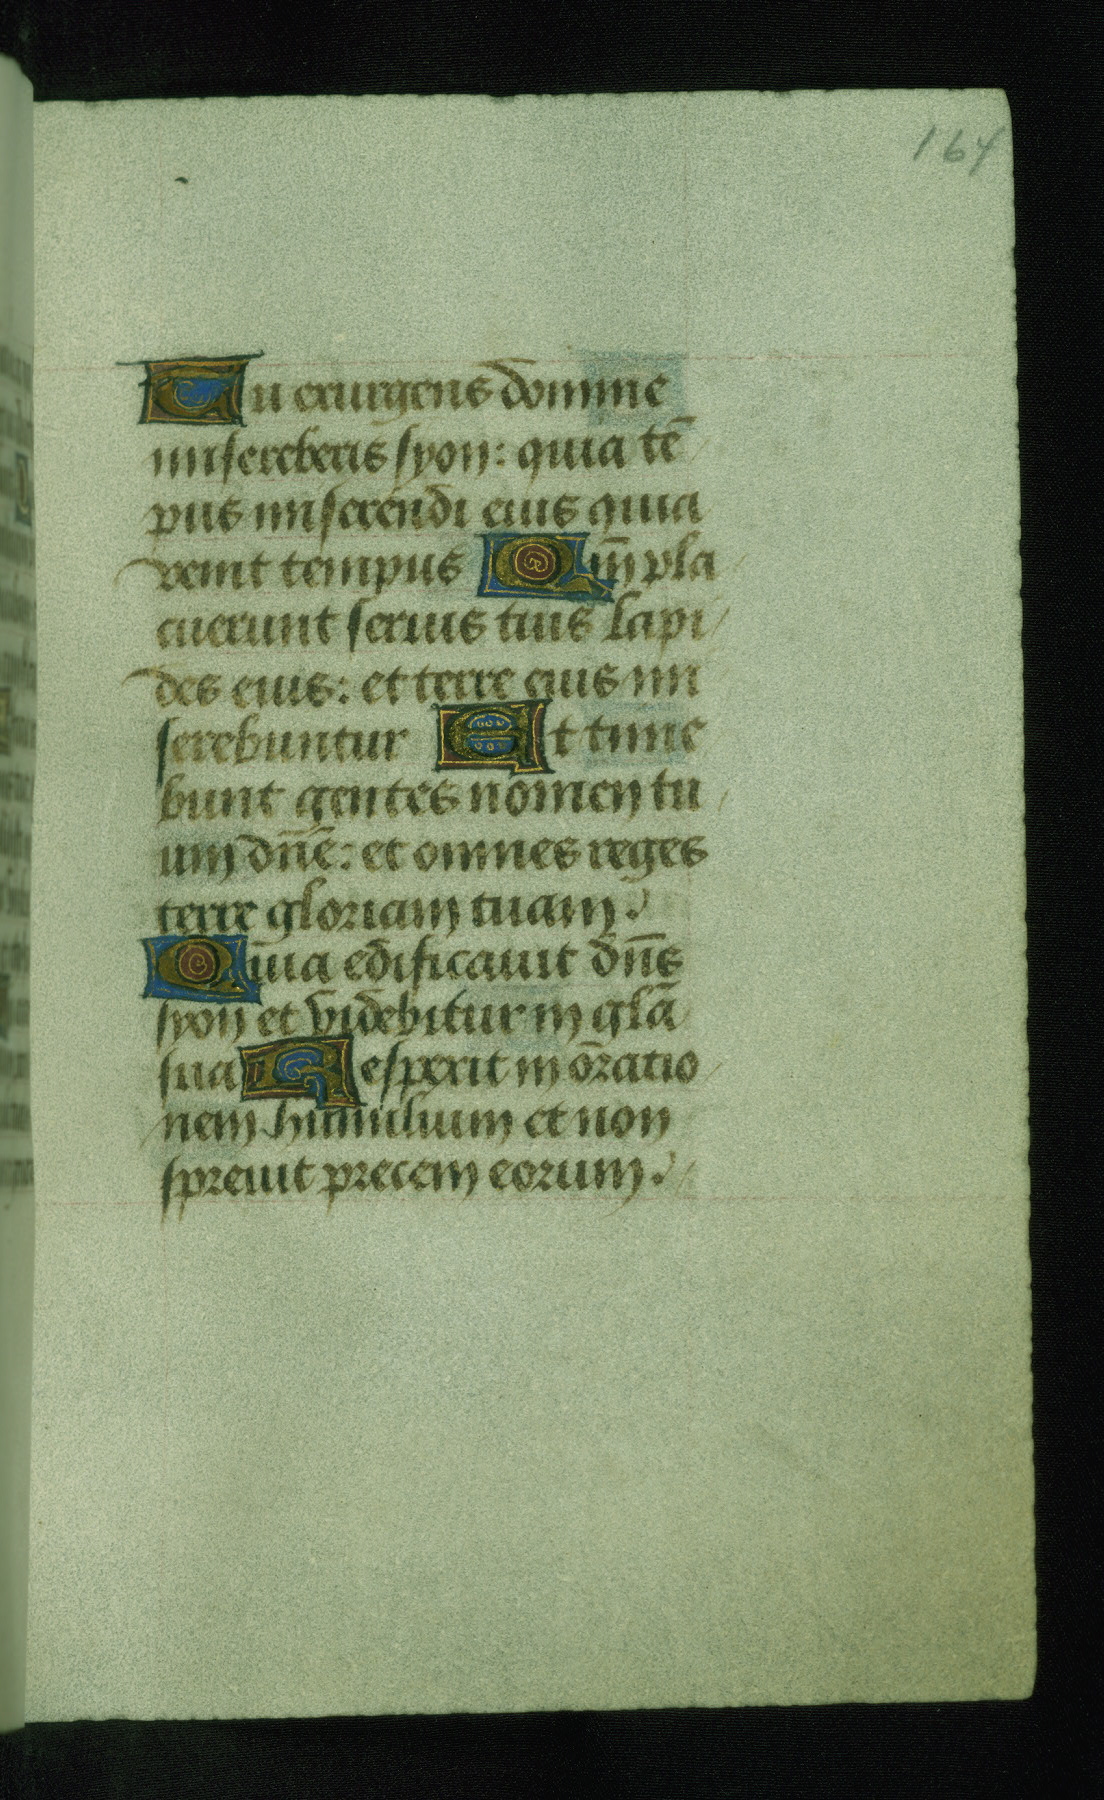 164
Tu exurgens domine
misereberis syon: quia tē
pus miserendi eius quia
venit tempus Qm̄ pla
cuerunt servis tuis lapi
des eius: et terre eius mi
serebuntur Et time
bunt gentes nomen tu
um dn̄e: et omnes reges
terre gloriam tuam.
Quia edificavit dn̄s
syon et videbitur in glā
sua Respexit in oratio
nem humilium et non
sprevit precem eorum.